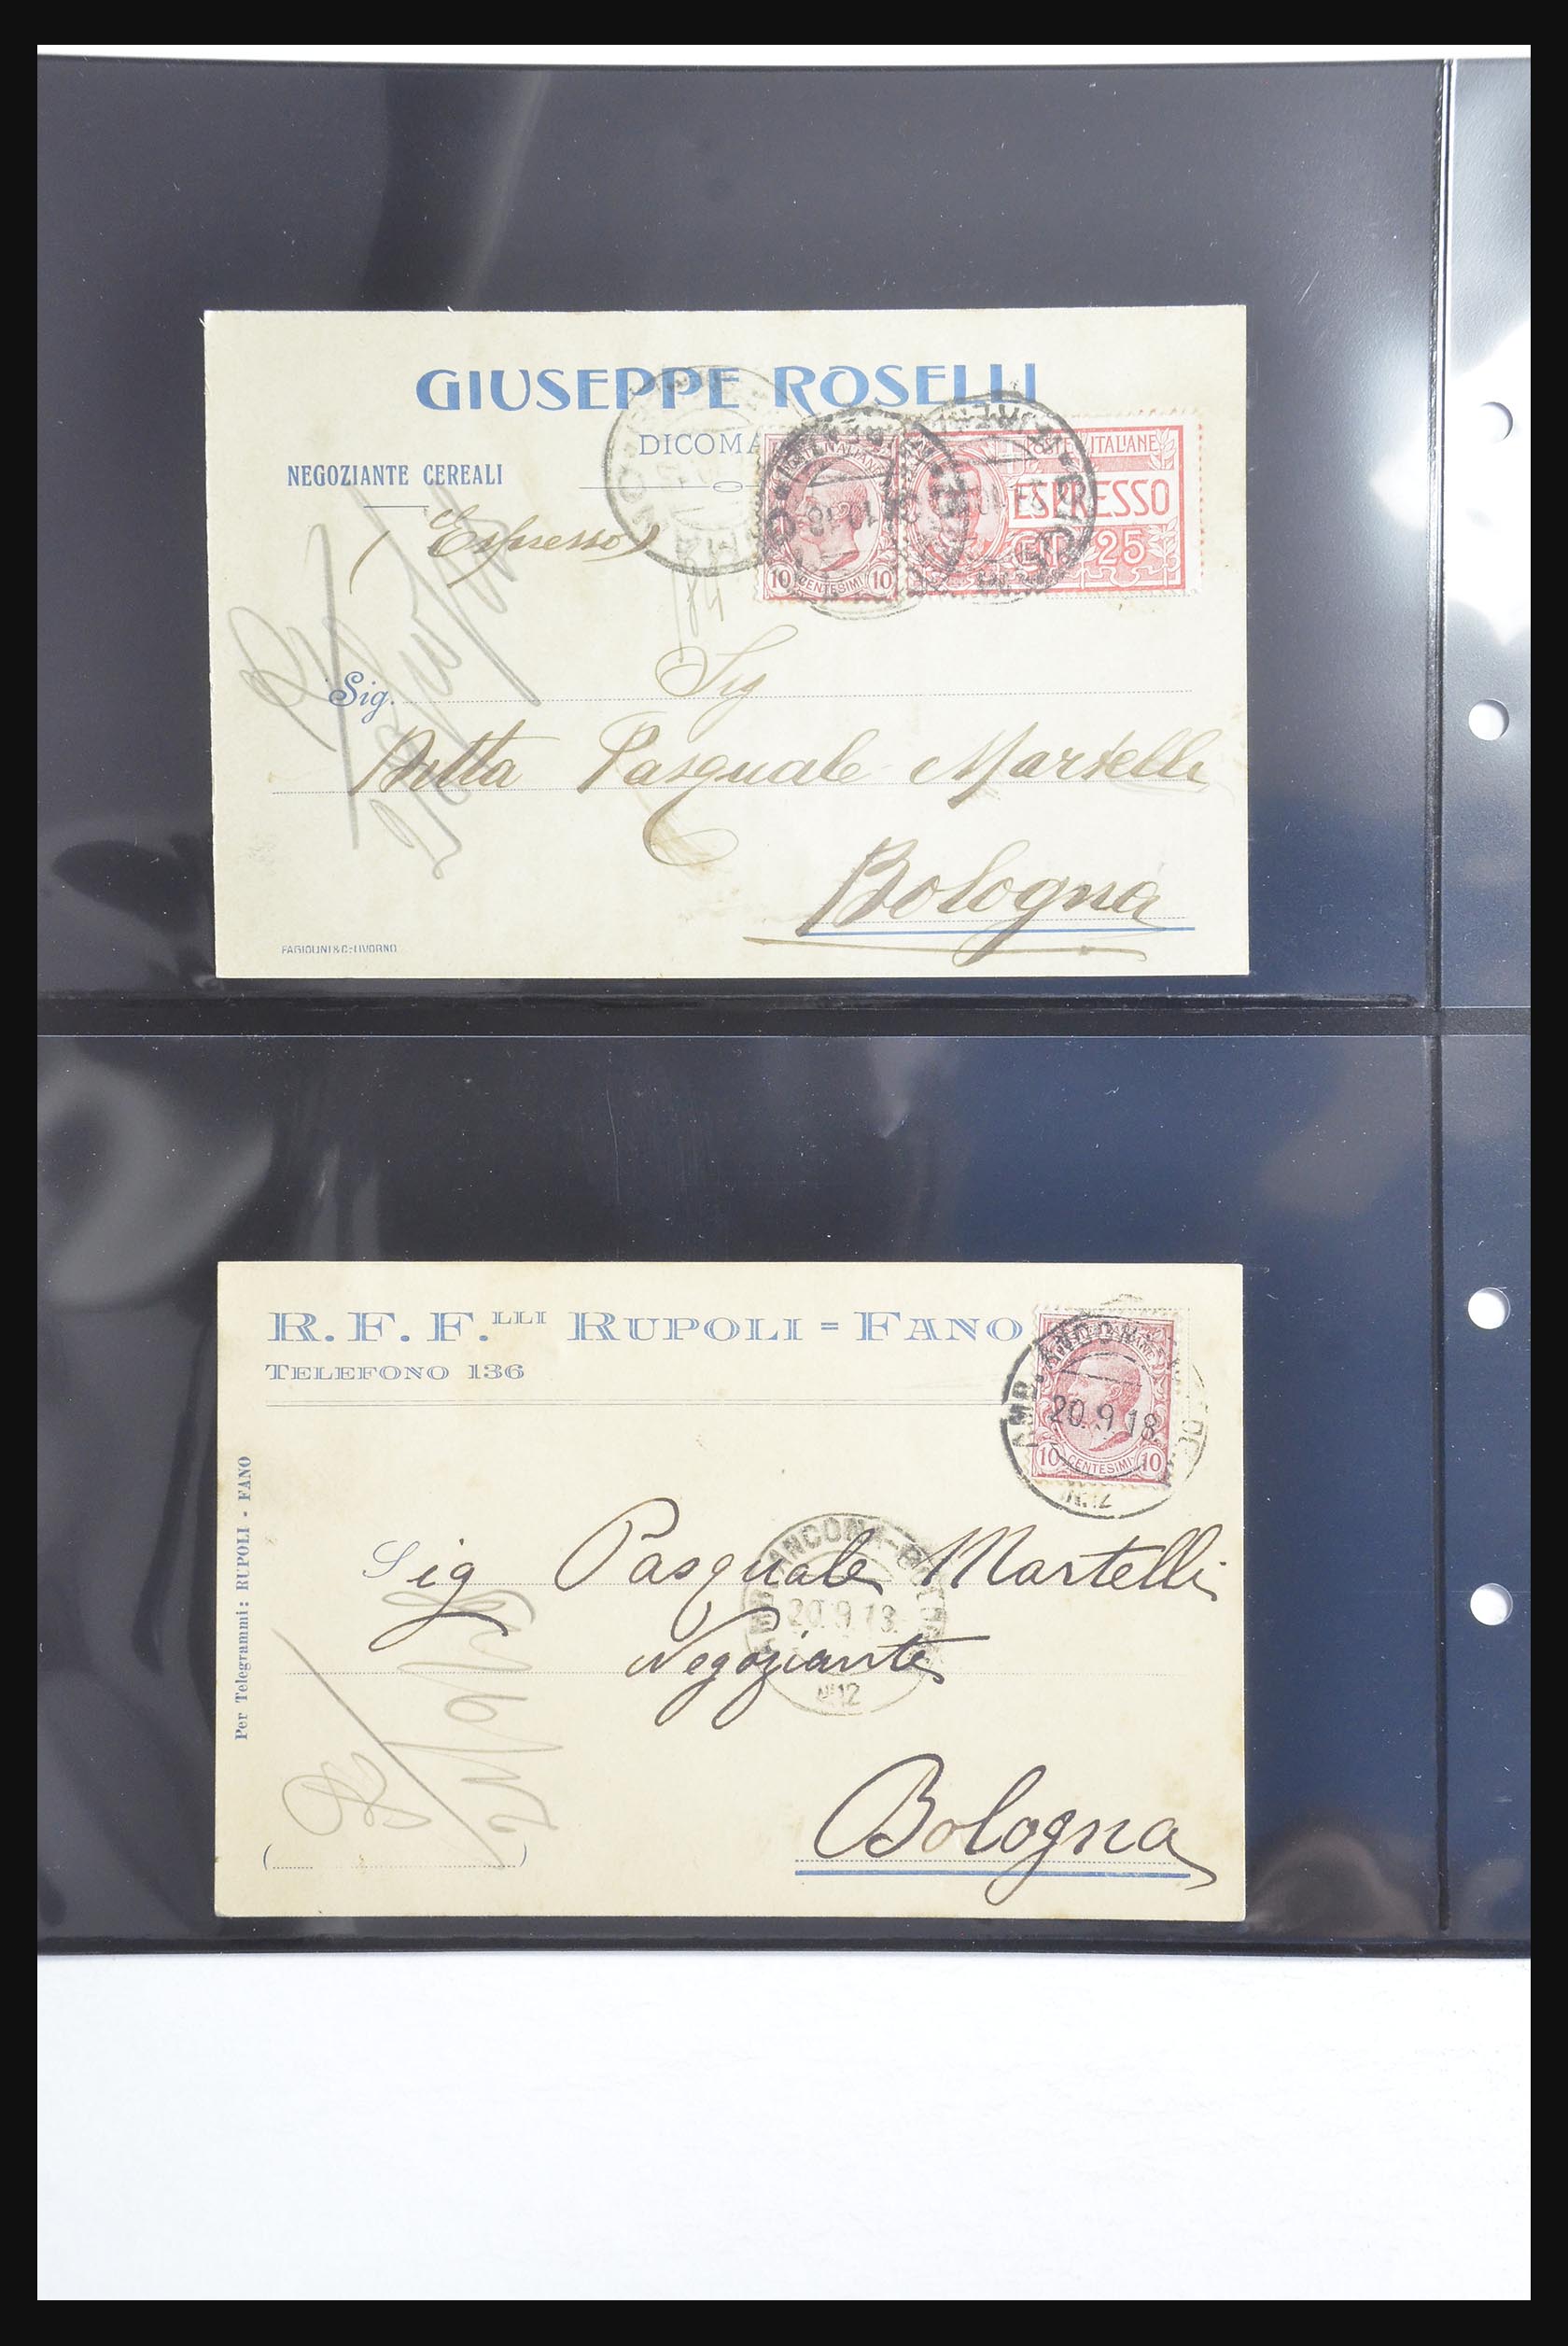 GIUSEPPE ROSELLI
DICOMA
NEGOZIANTE CEREALI
POSTE ITALIANE
ESPRESSO
CENT. 25
10 CENTESIMI 10
(Espresso)
Sig.
Sig
Ditta Pasquale Martelli
Bologna
FAGIOLINI & C.-LIVORNO
R. F. F.LLI RUPOLI = FANO
TELEFONO 136
AMB. ANCONA
20.9.18.
10 CENTESIMI 10
N.12
Per Telegrammi: RUPOLI - FANO
Sig Pasquale Martelli
AMB. ANCONA-BOLOGNA
20.9.18.
Negoziante
N.12
Bologna
( )